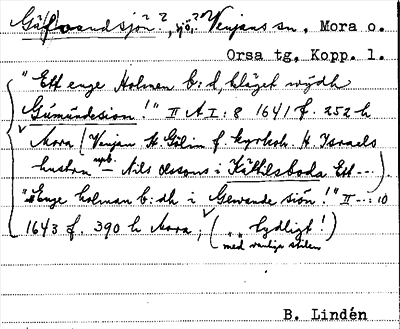 Gåfvandsjön??, sjö, ?? Venjans sn, Mora o.
Orsa tg, Kopp. l.
"Ett enge Holmen b:d, hläget wijdh
Gúmúndesion!" II A I:8 1641 f. 252 h
Mora (Venjan H Gölin f. kyrkoh. H Israels
hustru upb. — Nils Olssons i Kättilsboda Ett --).
"Enge holman b:dh i Gewande siön!" II --:10
1643 f. 390 h Mora, (.. tydligt!)
med vanliga stilen
B. Lindén